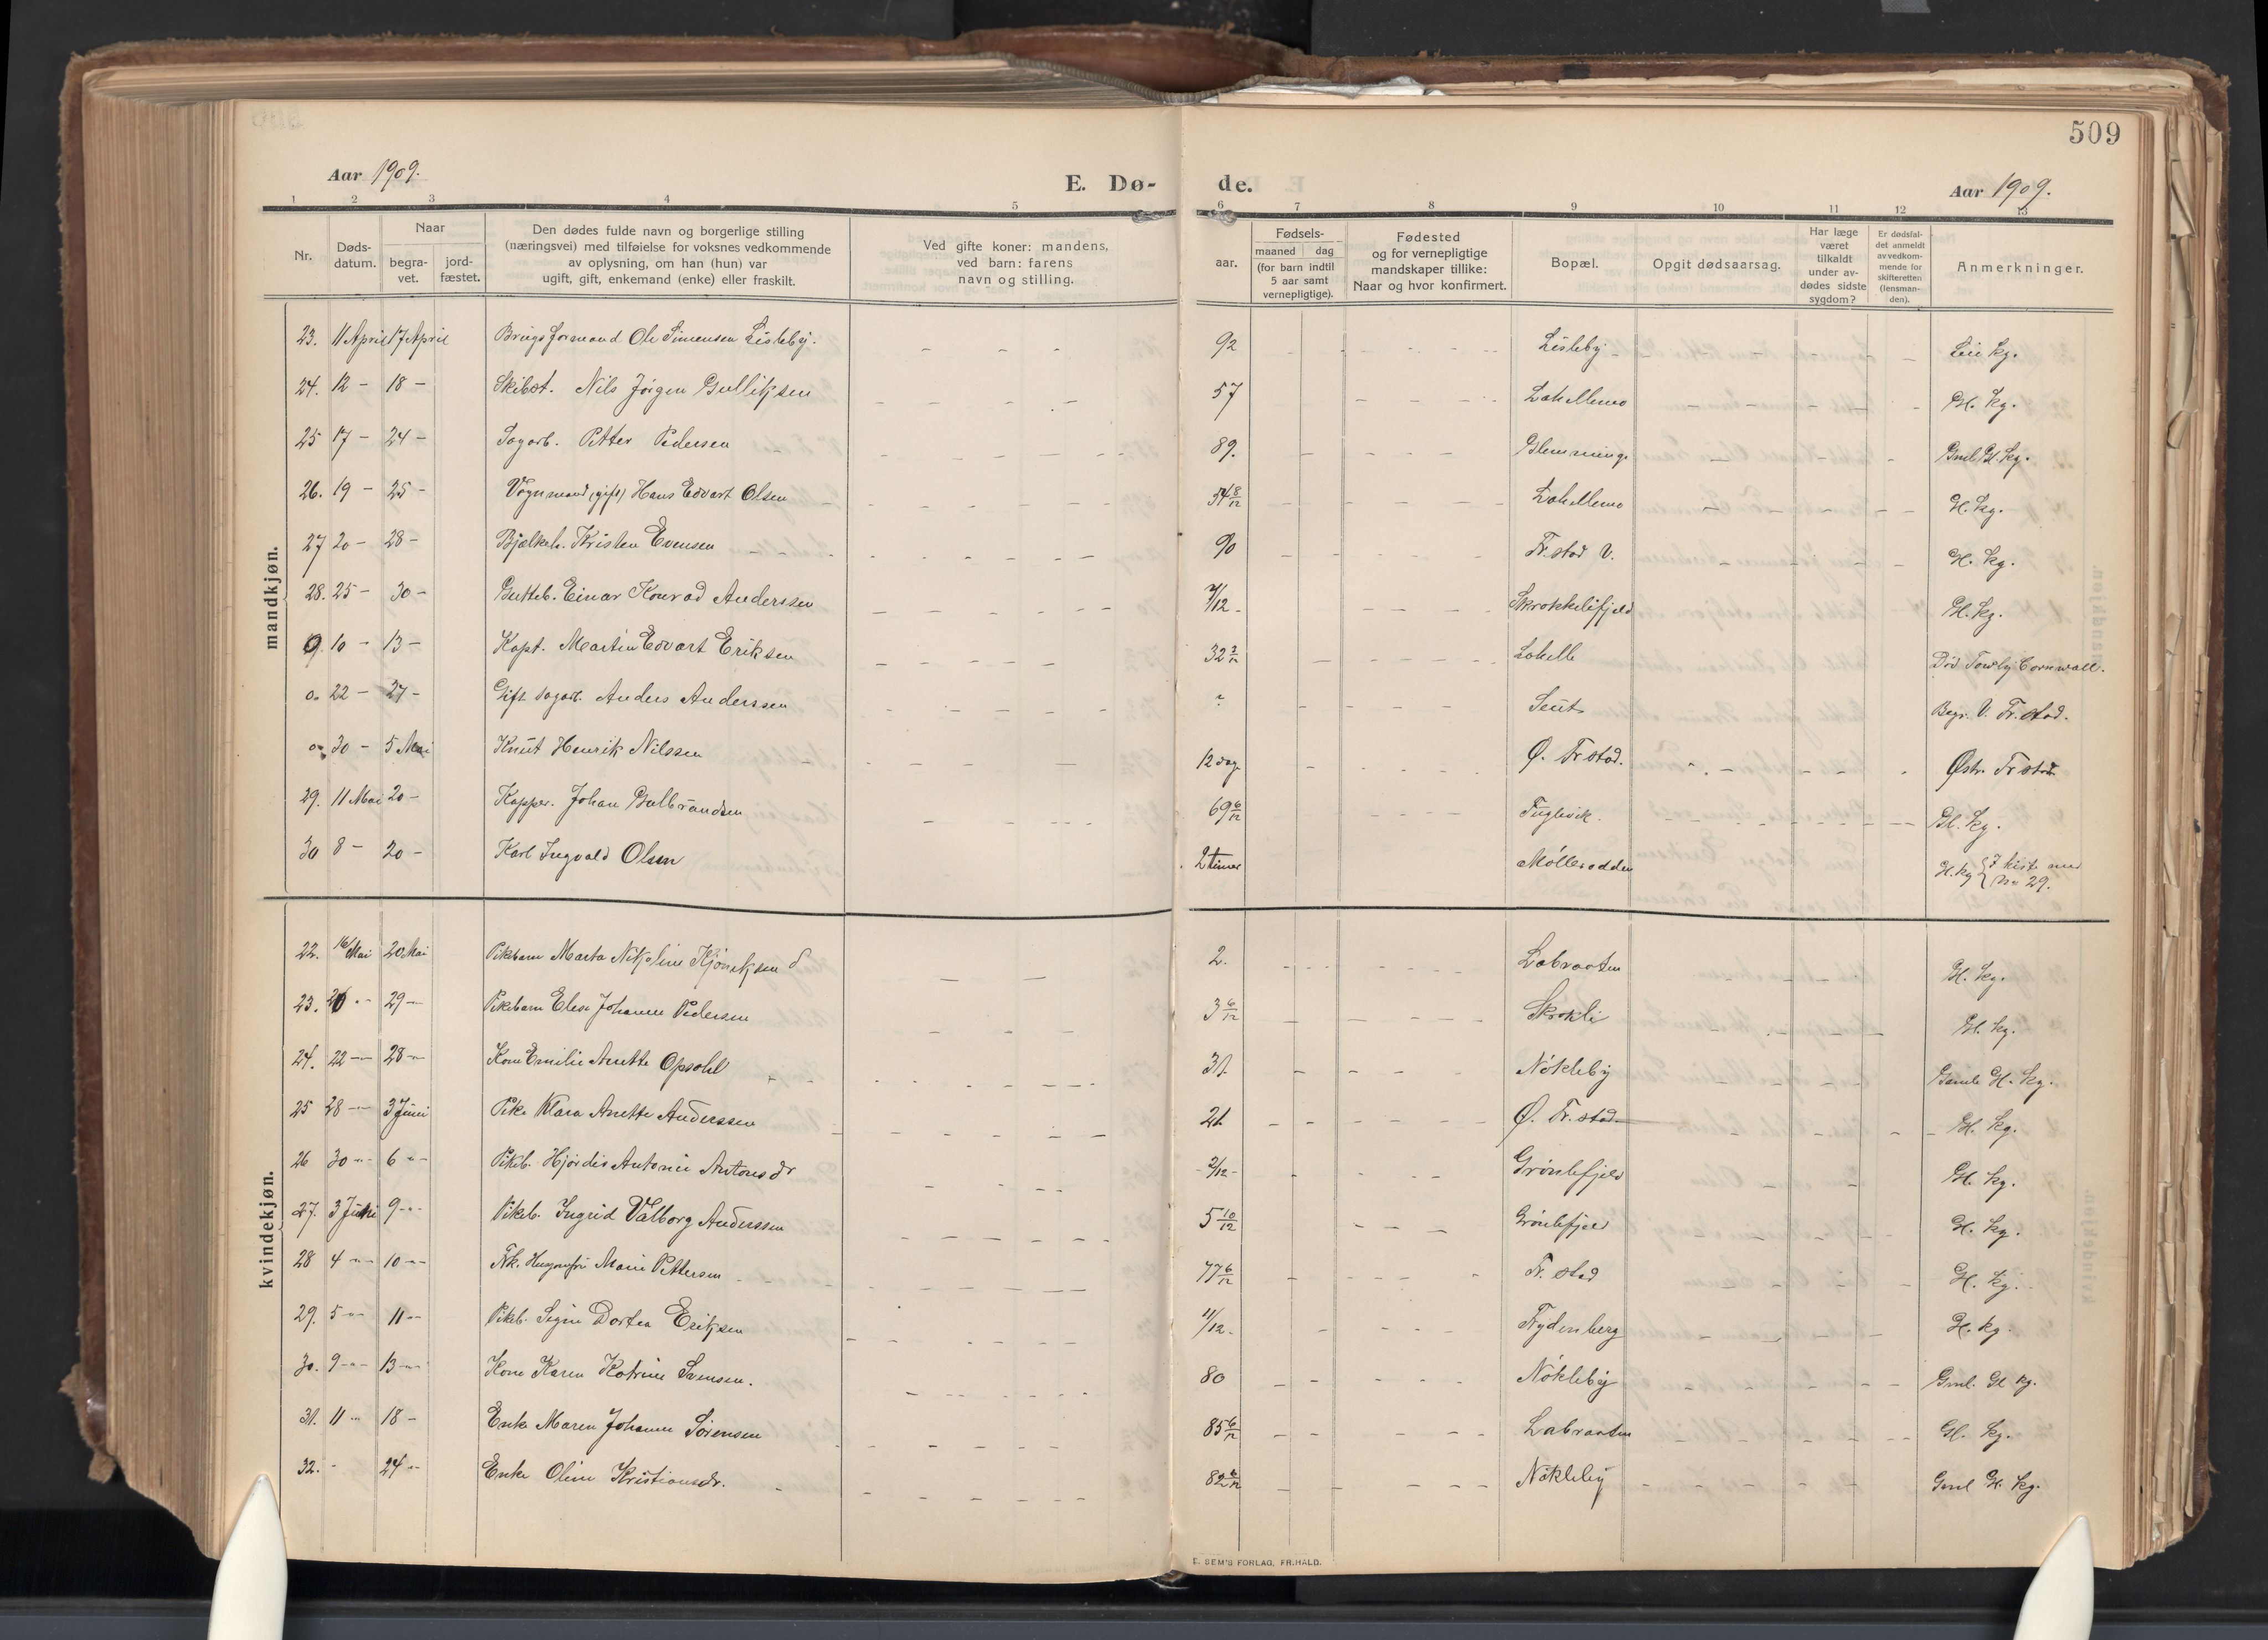 509
Aar 1909. E. Dø- de. Aar 1909.
1 2 3 4 5 6 7 8 9 10 11 12 13
Nr. Døds-datum. Naar begra-vet. jord-fæstet. Den dødes fulde navn og borgerlige stilling (næringsvei) med tilføielse for voksnes vedkommende av oplysning, om han (hun) var ugift, gift, enkemand (enke) eller fraskilt. Ved gifte koner: mandens, ved barn: farens navn og stilling. aar. Fødsels- maaned dag (for barn indtil 5 aar samt vernepligtige). Fødested og for vernepligtige mandskaper tillike: Naar og hvor konfirmert. Bopæl. Opgit dødsaarsag. Har læge været tilkaldt under av-dødes sidste sygdom? Er dødsfal-det anmeldt av vedkom-mende for skifteretten (lensman-den). Anmerkninger.
mandkjøn.
23. 11 April 17 April Brugsformand Ole Simensen Lisleby. 92 Lisleby Leie kg.
24. 12 - 18 - Skibst. Nils Jörgen Gulliksen 57 Lahellemo Gl. kg.
25 17 - 24 - Sagarb. Petter Pedersen 89. Glemminge Gml Gl. kg.
26. 19 - 25 - Vognmand (gift) Hans Edvart Olsen 54 8/12 Lahellemo Gl. kg.
27 20 - 28 - Bjælkeh. Kristen Evensen 90 Fr.stad V. Gl. kg.
28. 25 - 30 - Gutteb. Einar Konrad Anderssen 7/12 - Skrokkelifjeld Gl. kg.
0. 10 - 13 - Kapt. Martin Edvart Eriksen 32 3/12 Lahelle Död Cornwall.
0. 22 - 27 - Gift sagarb. Anders Anderssen ? Seut Begr. V. Fr.stad.
0. 30 - 5 Mai Knut Henrik Nilssen 12 dag Ø. Fr stad. Østr. Fr stad
29. 11 Mai 20 - Kapper. Johan Gulbrandsen 69 6/12 Fuglevik. Gl. kg.
30 8 - 20 - Karl Ingvald Olsen 2 timer Mölleodden Gl. kg { I kiste med No 29.
kvindekjøn.
22. 16 Mai 20 Mai Pikebarn Marta Nikoline 2. Labraaten Gl. kg.
23. 20 - 29 - Pikebarn Elise Johanne Pedersen 3 6/12 Skrokli Gl. kg.
24. 22 - 28 - Kone Emilie Anette Opsahl 31. Nökleby Gamle Gl. kg.
25 28 - 3 Juni Pike Klara Anette Anderssen 21. Ø. Fr. stad Gl. kg.
26 30 - 6 - Pikeb. Hjördis Antonie Antonsdr - 2/12 - Grönlifjeld Gl. kg.
27. 3 Juni 9 - Pikeb. Ingrid Valborg Anderssen 5 10/12 Grönlifjeld Gl. kg.
28 4 - 10 - Fhv. Husjomfru Marie Pettersen 77 6/12 Fr. stad Gl. kg.
29. 5 - 11 - Pikeb. Signe Dortea Eriksen 11/12 - Frydenberg Gl. kg.
30. 9 - 13 - Kone Karen Katrine Svensen. 80 Nökleby Gml. Gl kg.
31. 11 - 18 - Enke Maren Johanne Sörensen 85 6/12 Labraaten Gl. kg.
32. - 24 - Enke Oline Kristiansdr. 82 6/12 Nökleby Gml Gl. kg.
E. SEM'S FORLAG, FR.HALD.